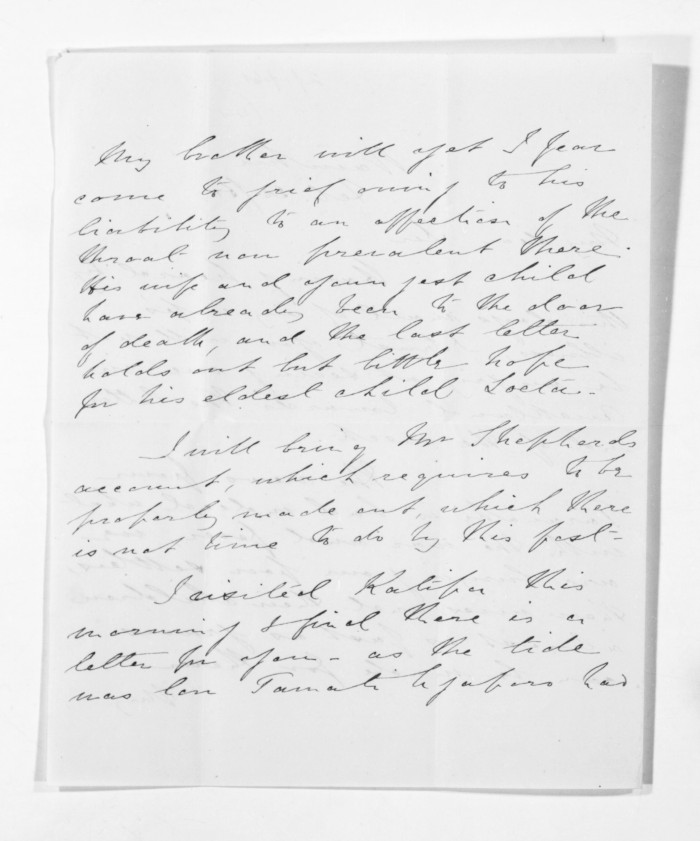 My brother will yet I fear
come to grief owing to his
liability to an affection of the
throat now prevalent there.
His wife and youngest child
have already been to the door
of death, and the last letter
holds out but little hope
for his eldest child
I will bring Mr Shepherds
account, which requires to be
properly made out, which there
is not time to do by this post -
I visited this
morning & find there is a
letter for you - as the tide
was low Tamati had